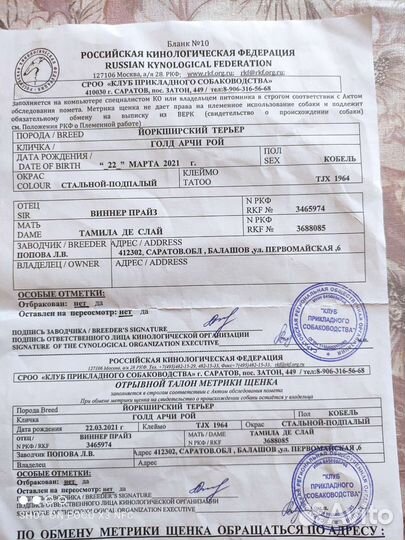 Бланк №10
РОССИЙСКАЯ КИНОЛОГИЧЕСКАЯ ФЕДЕРАЦИЯ
RUSSIAN KYNOLOGICAL FEDERATION
127106 Москва, а/я 28. РКФ: www.rkf.org.ru, rkf@rkf.org.ru
СРОО «КЛУБ ПРИКЛАДНОГО СОБАКОВОДСТВА»
410030 г. САРАТОВ, пос. ЗАТОН, 449 / тел:8-906-316-56-68
заполняется на компьютере специалистом КО или владельцем питомника в строгом соответствии с Актом
обследования помета. Метрика щенка не дает права на племенное использование собаки и подлежит
обязательному обмену на выписку из ВЕРК (свидетельство о происхождении собаки)
см. Положения РКФ о Племенной работе)
ПОРОДА / BREED ЙОРКШИРСКИЙ ТЕРЬЕР
КЛИЧКА/ ГОЛД АРЧИ РОЙ
ДАТА РОЖДЕНИЯ/ DATE OF BIRTH " 22 " МАРТА 2021 г. ПОЛ SEX КОБЕЛЬ
ОКРАС COLOUR СТАЛЬНОЙ-ПОДПАЛЫЙ КЛЕЙМО TATOO TJX 1964
ОТЕЦ SIR ВИННЕР ПРАЙЗ N РКФ RKF № 3465974
МАТЬ DAME ТАМИЛА ДЕ СЛАЙ N РКФ RKF № 3688085
ЗАВОДЧИК / BREEDER ПОПОВА Л.В. АДРЕС / ADDRESS 412302, САРАТОВ.ОБЛ , БАЛАШОВ ,ул. ПЕРВОМАЙСКАЯ ,6
ВЛАДЕЛЕЦ / OWNER АДРЕС / ADDRESS
ОСОБЫЕ ОТМЕТКИ:
Отбракован: нет да
Оставлен на пересмотр: нет да
ПОДПИСЬ ЗАВОДЧИКА / BREEDER'S SIGNATURE
ПОДПИСЬ ОТВЕТСТВЕННОГО ЛИЦА КИНОЛОГИЧЕСКОЙ ОРГАНИЗАЦИИ
SIGNATURE OF THE CYNOLOGICAL ORGANIZATION EXECUTIVE
"КЛУБ ПРИКЛАДНОГО СОБАКОВОДСТВА"
РОССИЙСКАЯ КИНОЛОГИЧЕСКАЯ ФЕДЕРАЦИЯ
СРОО «КЛУБ ПРИКЛАДНОГО СОБАКОВОДСТВА» г. САРАТОВ, пос. ЗАТОН, 449 / тел:8-906-316-56-68
ОТРЫВНОЙ ТАЛОН МЕТРИКИ ЩЕНКА
заполняется в строгом соответствии с Актом обследования помета
При обмене метрики на свидетельство о происхождении собаки остаётся у владельца
Порода Breed ЙОРКШИРСКИЙ ТЕРЬЕР
Кличка ГОЛД АРЧИ РОЙ Пол КОБЕЛЬ Окрас СТАЛЬНОЙ-ПОДПАЛЫЙ
Дата рождения 22.03.2021 г. Клеймо TJX 1964
ОТЕЦ/ SIR N РКФ/ ВИННЕР ПРАЙЗ 3465974 МАТЬ / DAME N РКФ/ ТАМИЛА ДЕ СЛАЙ 3688085
Заводчик ПОПОВА Л.В. Адрес 412302, САРАТОВ.ОБЛ , БАЛАШОВ,ул. ПЕРВОМАЙСКАЯ ,6
Владелец Адрес
ОСОБЫЕ ОТМЕТКИ:
Отбракован: нет да
Оставлен на пересмотр: нет да
BREEDER'S SIGNATURE
КИНОЛОГИЧЕСКОЙ ОРГАНИЗАЦИИ
ORGANIZATION EXECUTIVE
"КЛУБ ПРИКЛАДНОГО СОБАКОВОДСТВА"
NFC
Avito
ПО ОБМЕНУ МЕТРИКИ ЩЕНКА ОБРАЩАТЬСЯ ПО АДРЕСУ :